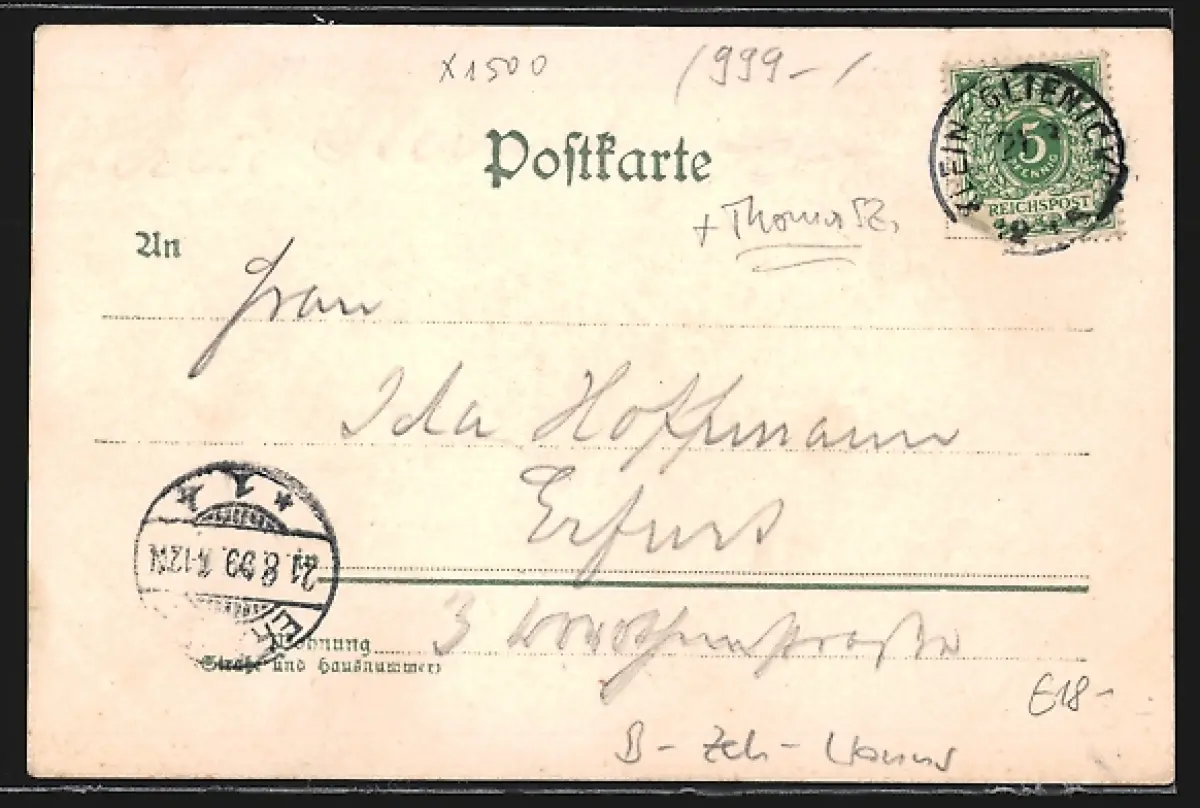 x1500 1999-/
Postkarte
KLEIN-GLIENICKE
5
PFENNIG
REICHSPOST
+Thomas
An
Frau
Ida Hoffmann
Erfurt
* 1 k
21.8.99. 11-12N
3 Dorotheenstraße
Wohnung
Straße und Hausnummer
€18-
B-Zeh-